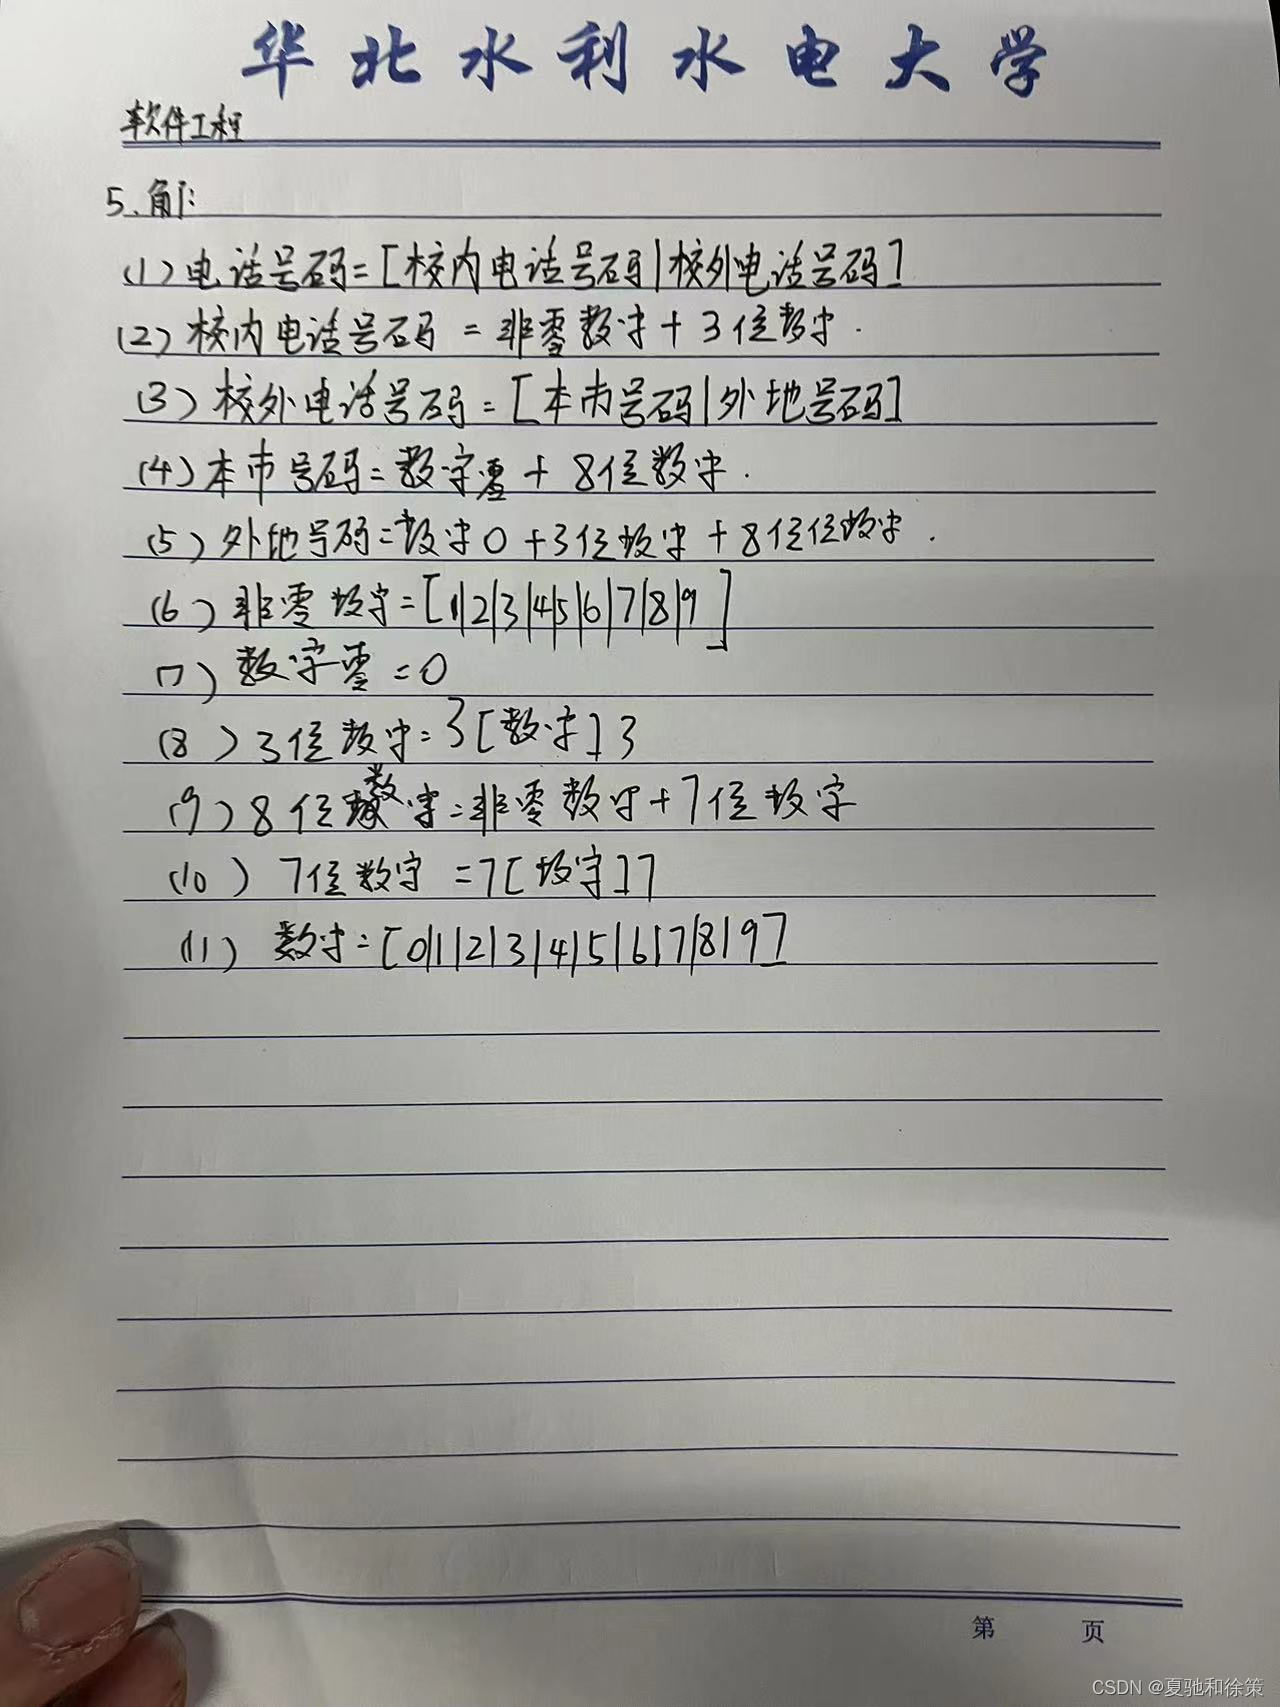 华北水利水电大学
软件工程
5.解:
(1)电话号码=[校内电话号码|校外电话号码]
(2)校内电话号码 = 非零数字+3位数字.
(3)校外电话号码=[本市号码|外地号码]
(4)本市号码=数字零+8位数字.
(5)外地号码=数字0+3位数字+8位位数字.
(6)非零数字=[1|2|3|4|5|6|7|8|9]
(7)数字零=0
(8)3位数字=3[数字]3
(9)8位数字=非零数字+7位数字
(10) 7位数字 =7[数字]7
(11) 数字=[0|1|2|3|4|5|6|7|8|9]
第 页
CSDN @夏驰和徐策